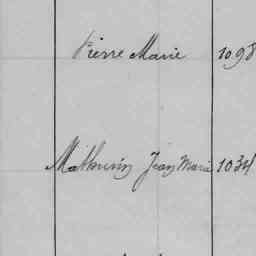 Pierre Marie 1098
Mathurin Jean Marie 1034